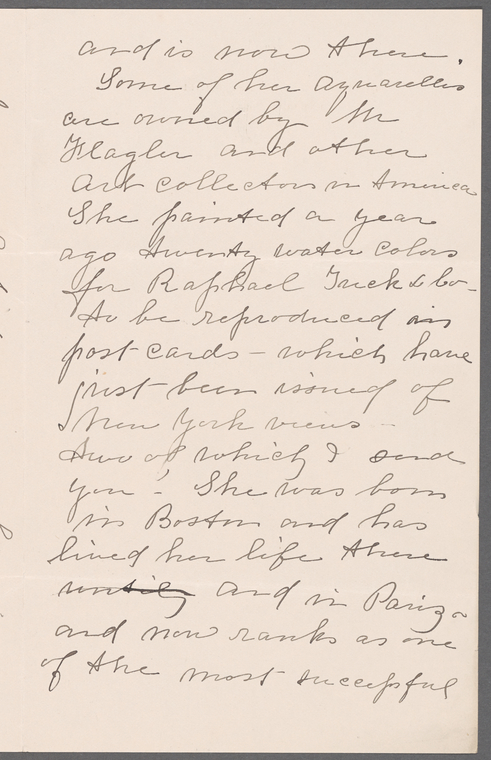 and is now there.
Some of her aquarelles
are owned by Mr
Flagler and other
Art collectors in America
She painted a year
ago twenty water colors
for Raphael Tuck & Co-
to be reproduced in
post cards - which have
just been issued of
New York views -
two of which I send
you - She was born
in Boston and has
lived her life there
and in Paris -
and now ranks as one
of the most successful